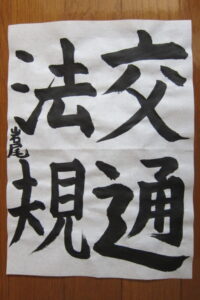 交通
法規
岩尾